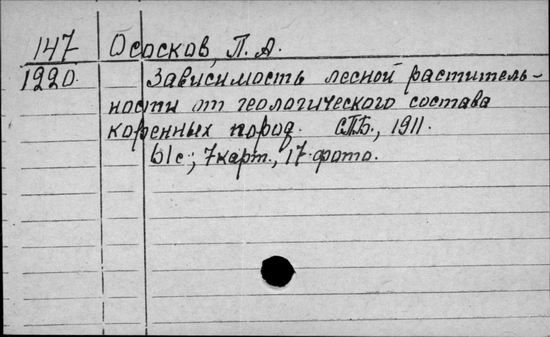 147 Ососков, П. А.
1220. Зависимость лесной раститель-
ности от геологического состава
коренных пород. СПБ., 1911.
61с., 7карт., 17 фото.